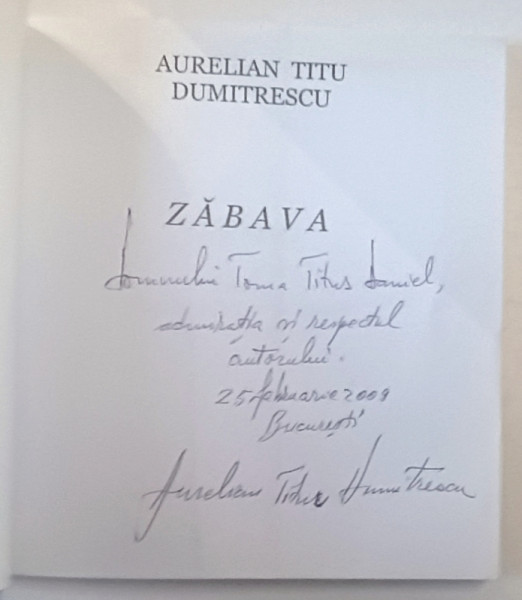 AURELIAN TITU
DUMITRESCU
ZĂBAVA
Domnului Toma Titus Daniel,
admirația și respectul
autorului.
25 februarie 2009
București
Aurelian Titu Dumitrescu